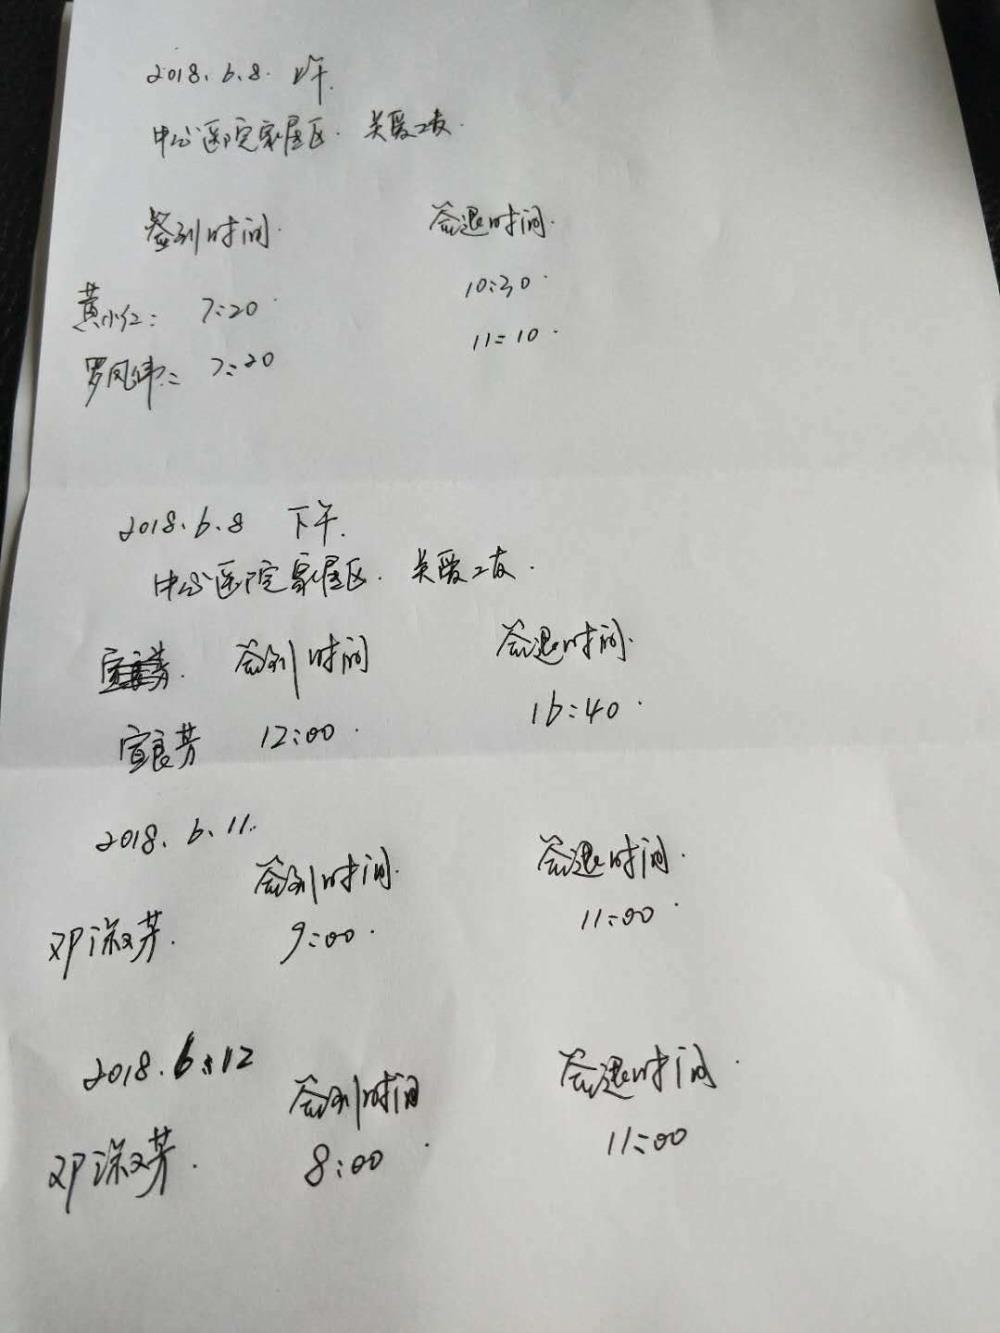 2018.6.8. 上午.
中心医院家属区. 关爱工友.
签到时间. 签退时间.
黄小红: 7:20 10:30
罗凤伟: 7:20 11:10
2018.6.8 下午.
中心医院家属区. 关爱工友.
签到时间 签退时间.
宣良芳 12:00 16:40
2018.6.11.
签到时间. 签退时间.
邓淑芳. 9:00 11:00
2018.6.12
签到时间 签退时间
邓淑芳. 8:00 11:00